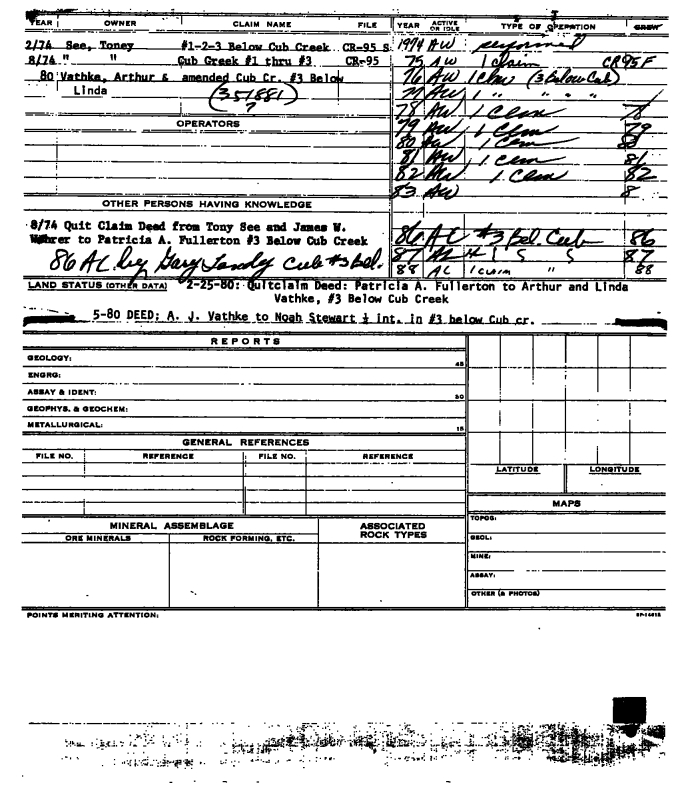 YEAR OWNER CLAIM NAME FILE YEAR ACTIVE OR IDLE TYPE OF OPERATION CREW
2/74 See, Toney #1-2-3 Below Cub Creek CR-95 S 1974 AW performed
8/74 " " Cub Greek #1 thru #3 CR-95 75 AW 1 claim CR95F
80 Vathke, Arthur & amended Cub Cr. #3 Below 76 AW 1 Clm (3 Below Cub)
Linda (351881) 77 AW 1 " " " "
? 78 AW 1 Clm 78
OPERATORS 79 AW 1 Clm 79
80 AW 1 Clm 80
81 AW 1 Clm 81
82 AW 1 Clm 82
83 AW 8
OTHER PERSONS HAVING KNOWLEDGE
8/74 Quit Claim Deed from Tony See and James W.
to Patricia A. Fullerton #3 Below Cub Creek 86 AL #3 Bel. Cub 86
86 AL by Gary Landy Cub #3 Bel. 87 AL 87
88 AL 1 claim " 88
LAND STATUS (OTHER DATA) 2-25-80: Quitclaim Deed: Patricia A. Fullerton to Arthur and Linda
Vathke, #3 Below Cub Creek
5-80 DEED; A. J. Vathke to Noah Stewart ½ int. in #3 below Cub cr.
REPORTS
GEOLOGY: 45
ENGRG:
ASSAY & IDENT: 30
GEOPHYS. & GEOCHEM:
METALLURGICAL: 15
GENERAL REFERENCES
FILE NO. REFERENCE FILE NO. REFERENCE
LATITUDE LONGITUDE
MAPS
MINERAL ASSEMBLAGE ASSOCIATED ROCK TYPES TOPOG:
ORE MINERALS ROCK FORMING, ETC. GEOL:
MINE:
ASSAY:
OTHER (& PHOTOS)
POINTS MERITING ATTENTION: